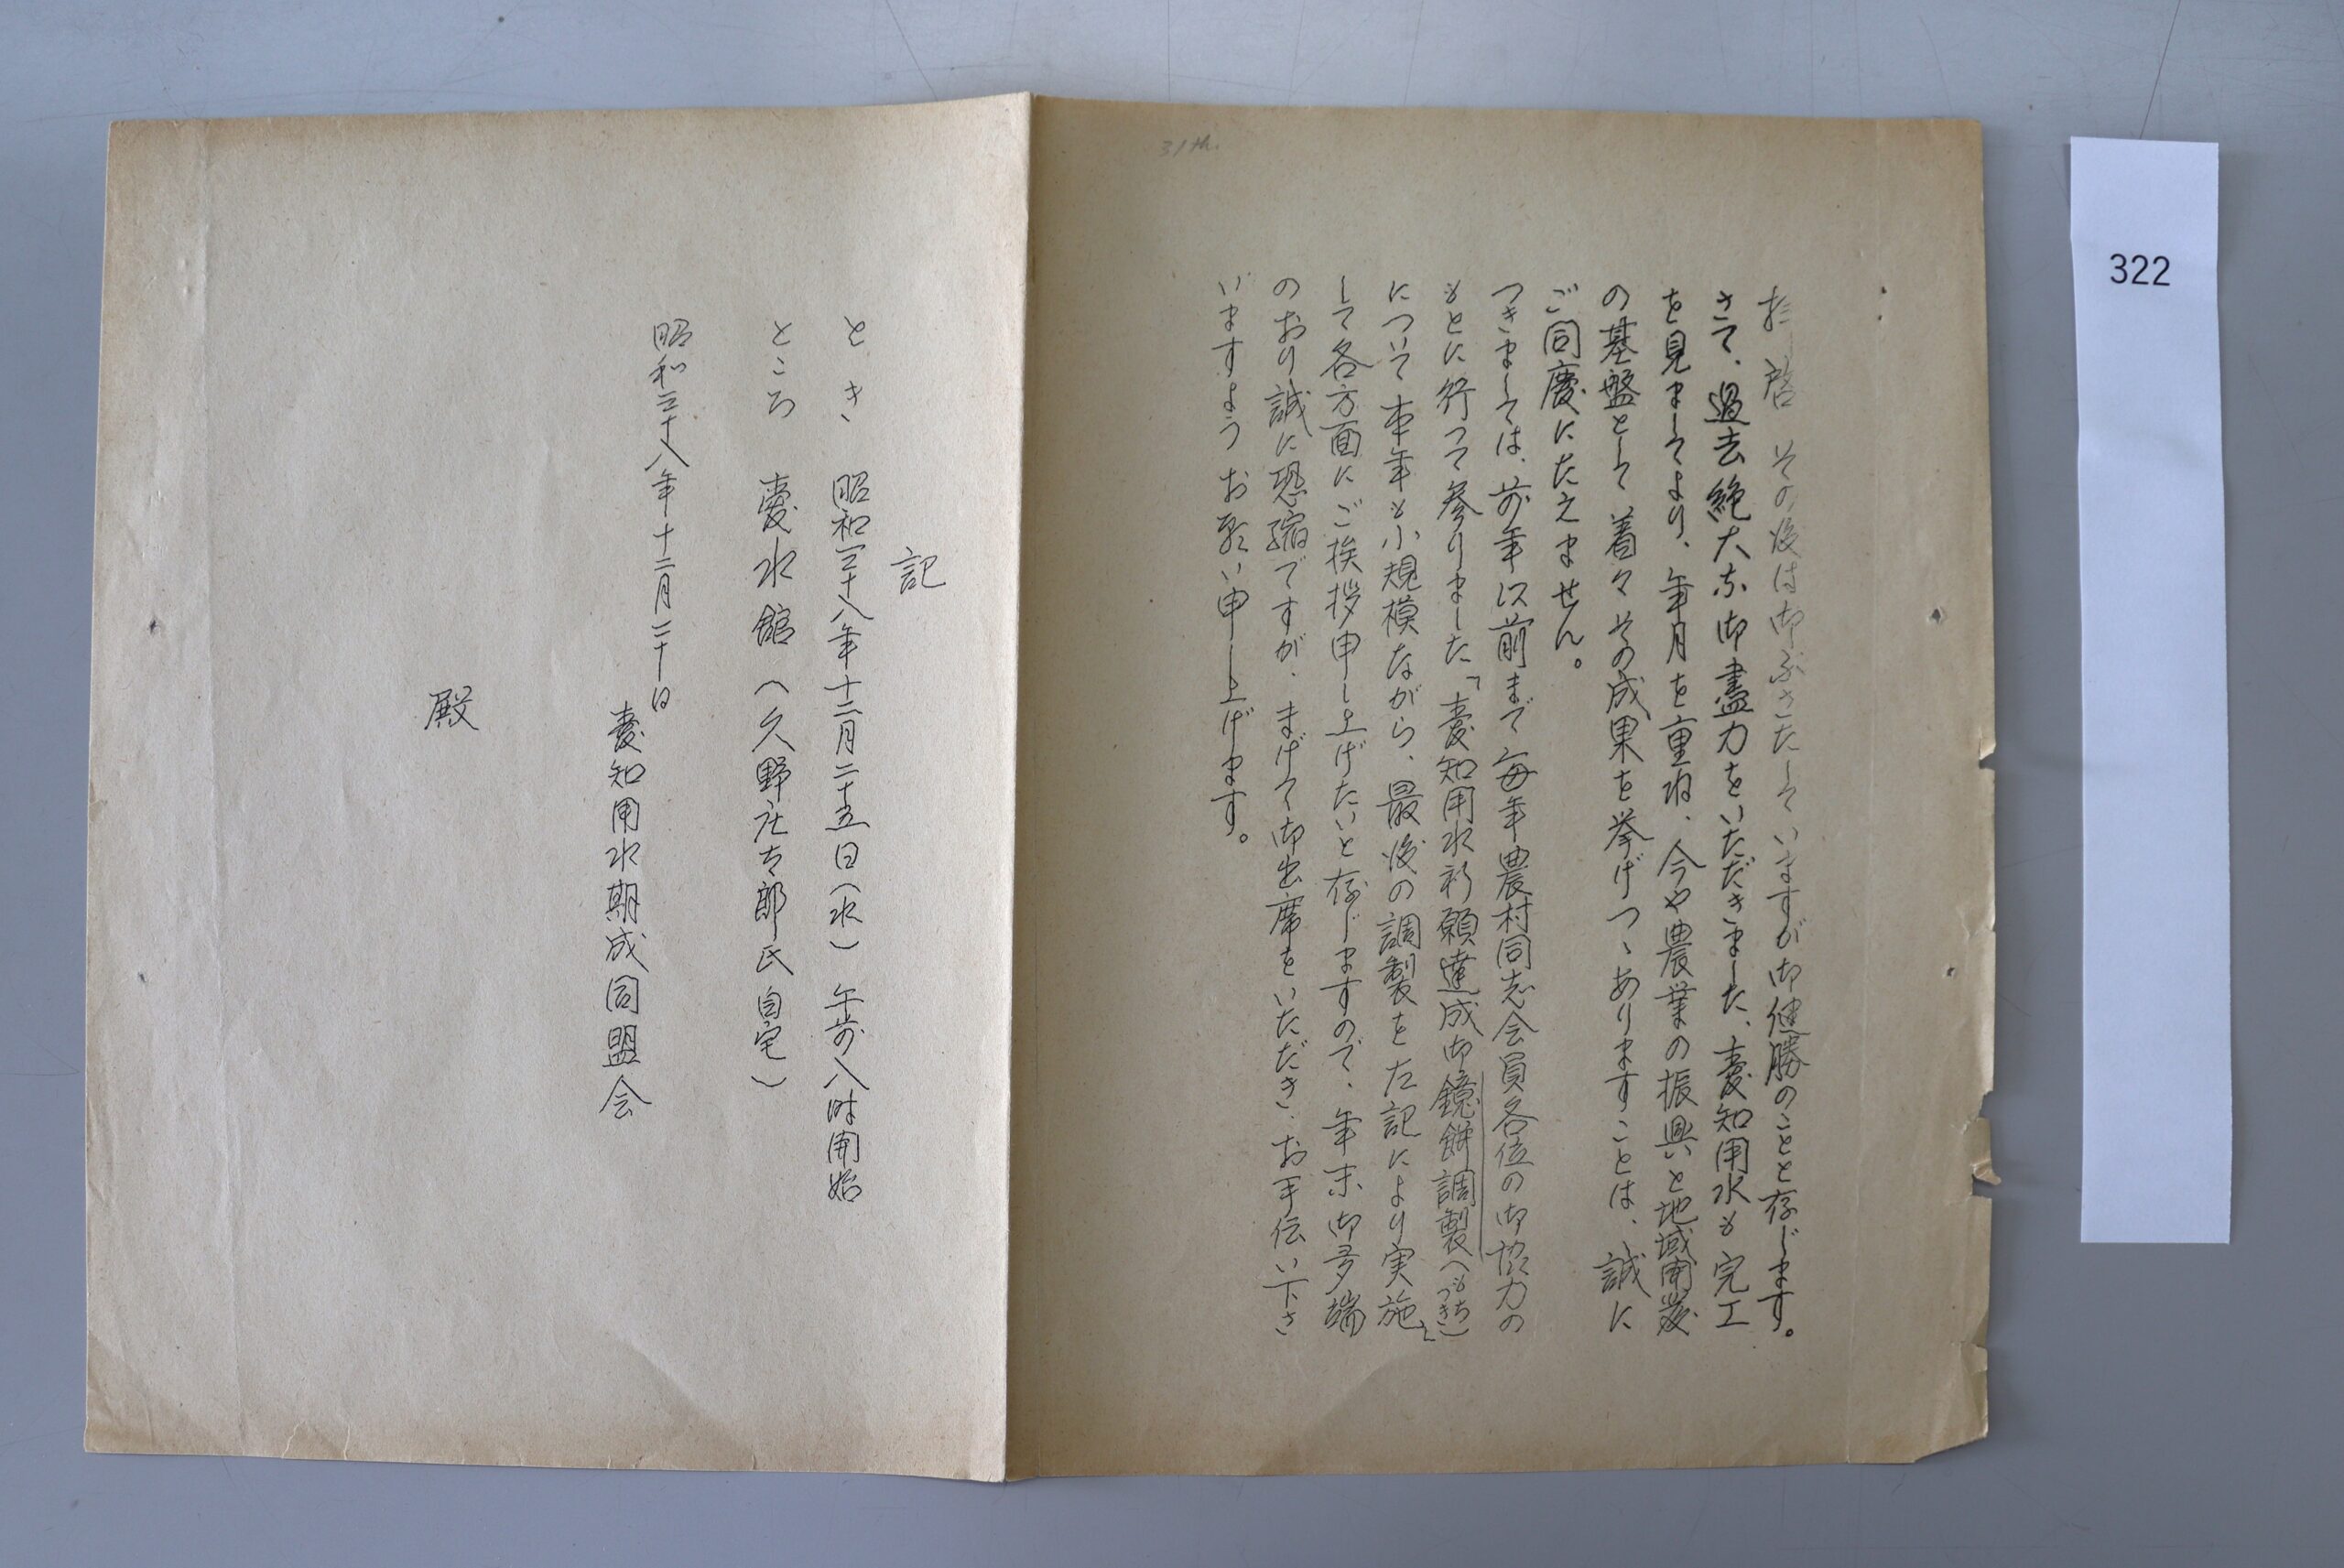 拝啓 その後は御ぶさたしていますが御健勝のことと存じます。
さて、過去絶大な御盡力をいただきました、愛知用水も完工
を見ましてより、年月を重ね、今や農業の振興と地域開発
の基盤として着々その成果を挙げつゝありますことは、誠に
ご同慶にたえません。
つきましては、前年以前まで毎年農村同志会員各位の御協力の
もとに行って参りました「愛知用水祈願達成御鏡餅調製(もちつき)」
について本年も小規模ながら、最後の調製を左記により実施
して各方面にご挨拶申し上げたいと存じますので、年末御多端
のおり誠に恐縮ですが、まげて御出席をいただき、お手伝い下さ
いますようお願い申し上げます。
31th.
記
とき 昭和三十八年十二月二十五日(水)午前八時開始
ところ 愛水館(久野庄太郎氏自宅)
昭和三十八年十二月二十日
愛知用水期成同盟会
殿
322